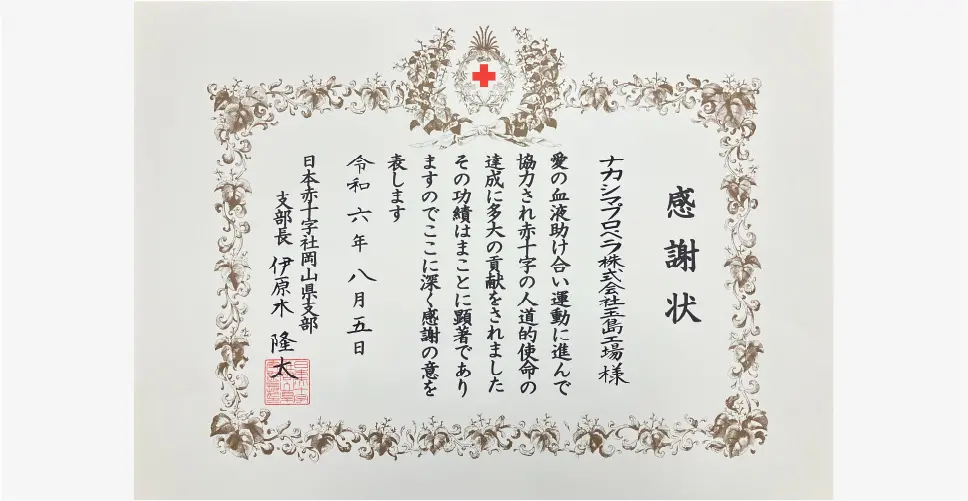 感謝状
ナカシマプロペラ株式会社玉島工場様
愛の血液助け合い運動に進んで
協力され赤十字の人道的使命の
達成に多大の貢献をされました
その功績はまことに顕著であり
ますのでここに深く感謝の意を
表します
令和六年八月五日
日本赤十字社岡山県支部
支部長 伊原木 隆太